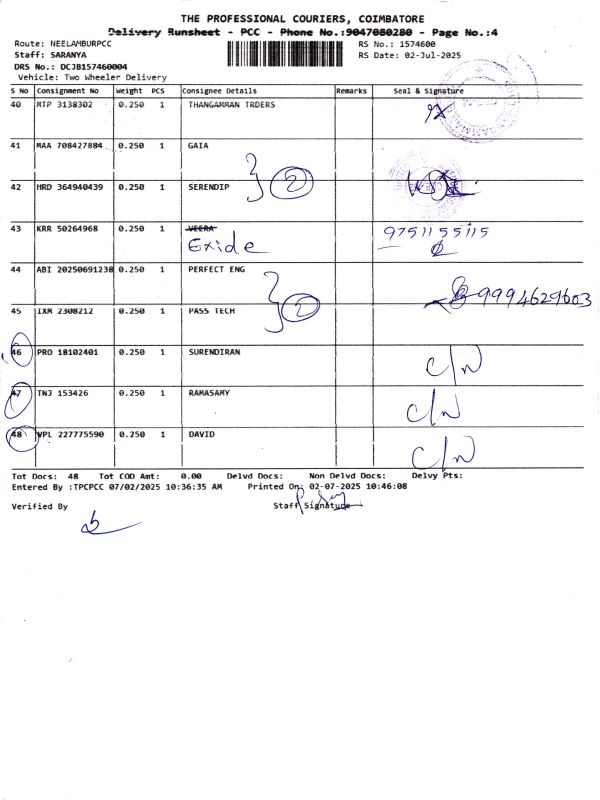 THE PROFESSIONAL COURIERS, COIMBATORE
Delivery Runsheet - PCC - Phone No.:9047080280 - Page No.:4
Route: NEELAMBURPCC RS No.: 1574600
Staff: SARANYA RS Date: 02-Jul-2025
DRS No.: DCJB157460004
Vehicle: Two Wheeler Delivery
S No Consignment No Weight PCS Consignee Details Remarks Seal & Signature
40 MTP 3138302 0.250 1 THANGAMMAN TRDERS
41 MAA 708427884 0.250 1 GAIA
2
42 HRD 364940439 0.250 1 SERENDIP
43 KRR 50264968 0.250 1 VEERA 9751155115
Exide
44 ABI 20250691238 0.250 1 PERFECT ENG
2 9994629603
45 IXM 2308212 0.250 1 PASS TECH
46 PRO 18102401 0.250 1 SURENDIRAN C/N
47 TNJ 153426 0.250 1 RAMASAMY C/N
48 VPL 227775590 0.250 1 DAVID C/N
Tot Docs: 48 Tot COD Amt: 0.00 Delvd Docs: Non Delvd Docs: Delvy Pts:
Entered By :TPCPCC 07/02/2025 10:36:35 AM Printed On: 02-07-2025 10:46:08
Verified By Staff Signature